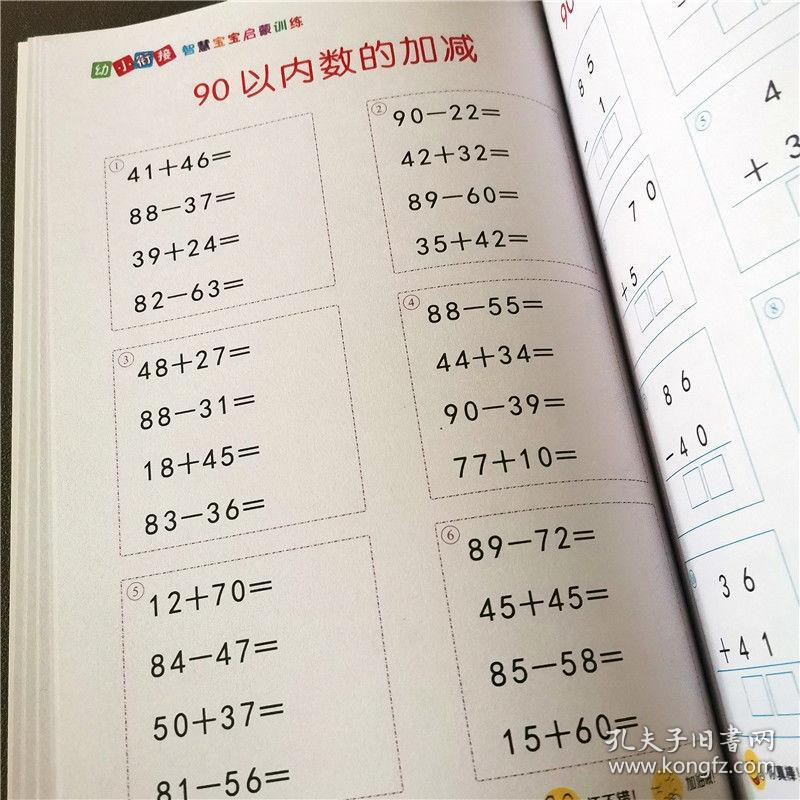 幼小衔接 智慧宝宝启蒙训练
90以内数的加减
①
41+46=
88-37=
39+24=
82-63=
②
90-22=
42+32=
89-60=
35+42=
③
48+27=
88-31=
18+45=
83-36=
④
88-55=
44+34=
90-39=
77+10=
⑤
12+70=
84-47=
50+37=
81-56=
⑥
89-72=
45+45=
85-58=
15+60=
90
85
- 1
70
+5
86
-40
36
+41
⑤
4
+ 3
⑧
孔夫子旧书网
www.kongfz.com